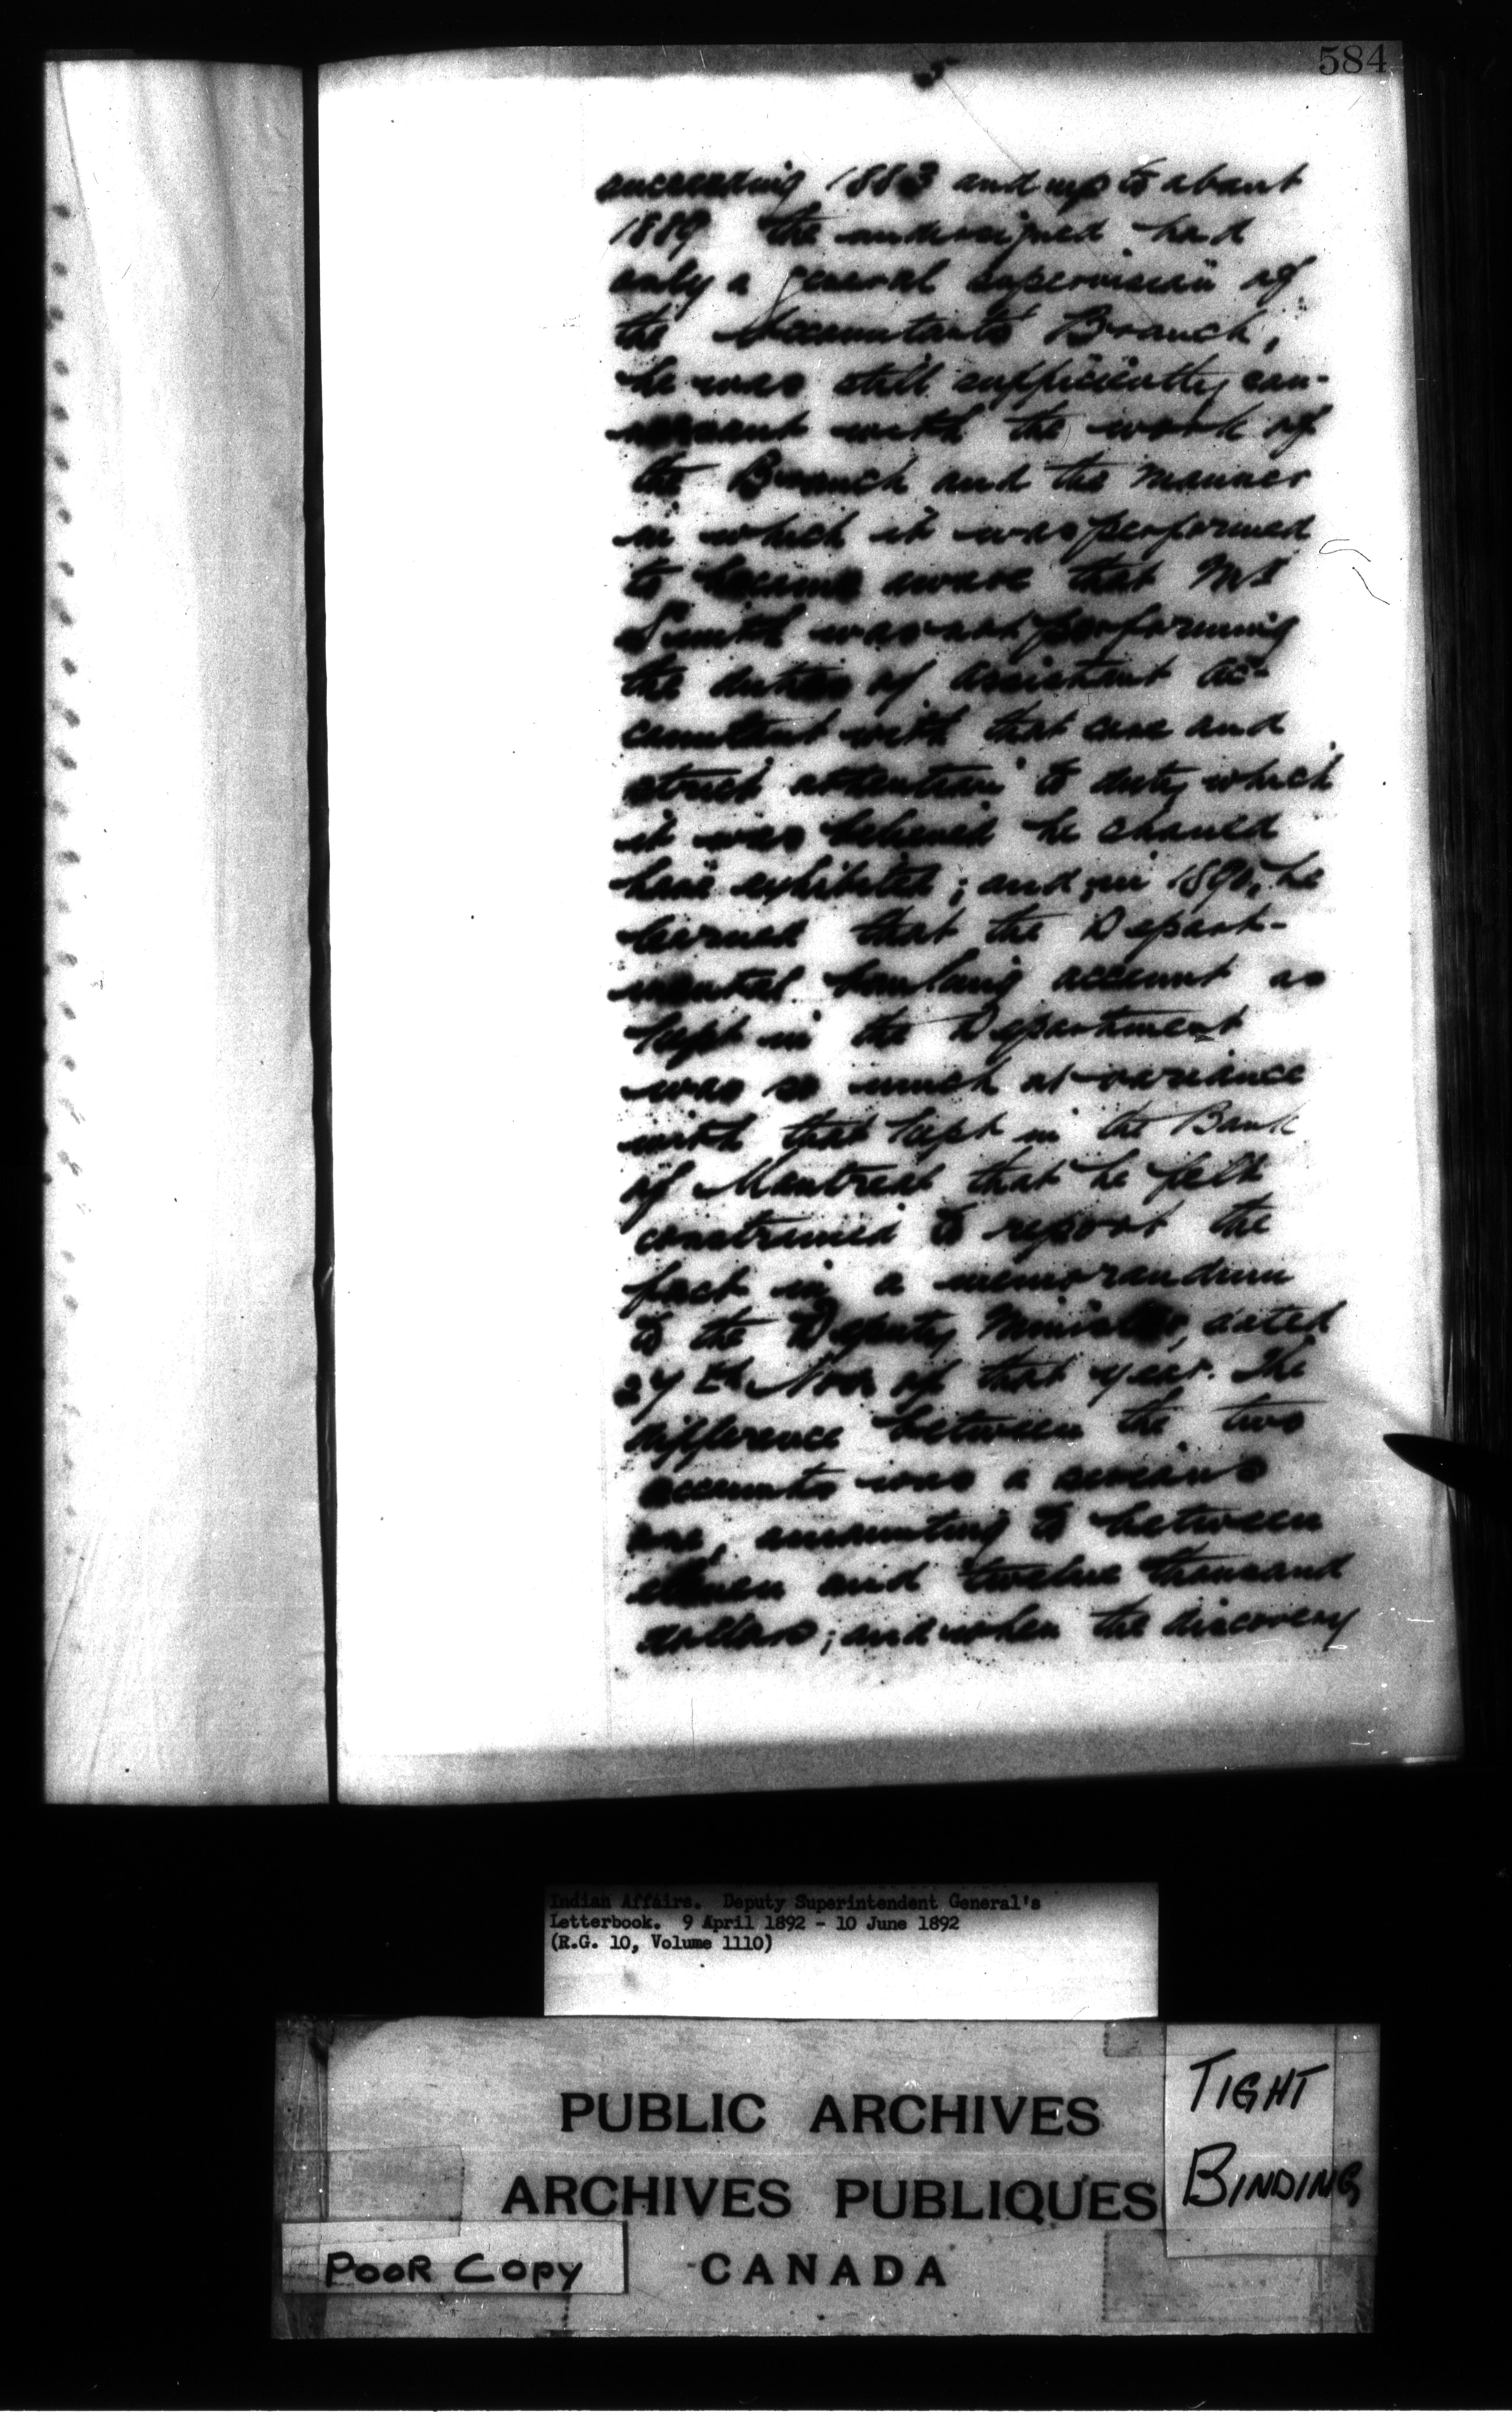 584
5
succeeding 1883 and up to about
1889 the undersigned had
only a general supervision of
the Accountant's Branch,
he was still sufficiently con-
versant with the work of
the Branch and the manner
in which it was performed
to become aware that Mr
Smith was not performing
the duties of assistant ac-
countant with that care and
strict attention to duty which
it was believed he should
have exhibited; and, in 1890, he
learned that the Depart-
mental banking account as
kept in the Department
was so much at variance
with that kept in the Bank
of Montreal that he felt
constrained to report the
fact in a memorandum
to the Deputy Minister, dated
27th Nov. of that year. The
difference between the two
accounts was a serious
one, amounting to between
eleven and twelve thousand
dollars; and when the discovery
Indian Affairs. Deputy Superintendent General's
Letterbook. 9 April 1892 - 10 June 1892
(R.G. 10, Volume 1110)
PUBLIC ARCHIVES
ARCHIVES PUBLIQUES
CANADA
TIGHT
BINDING
POOR COPY